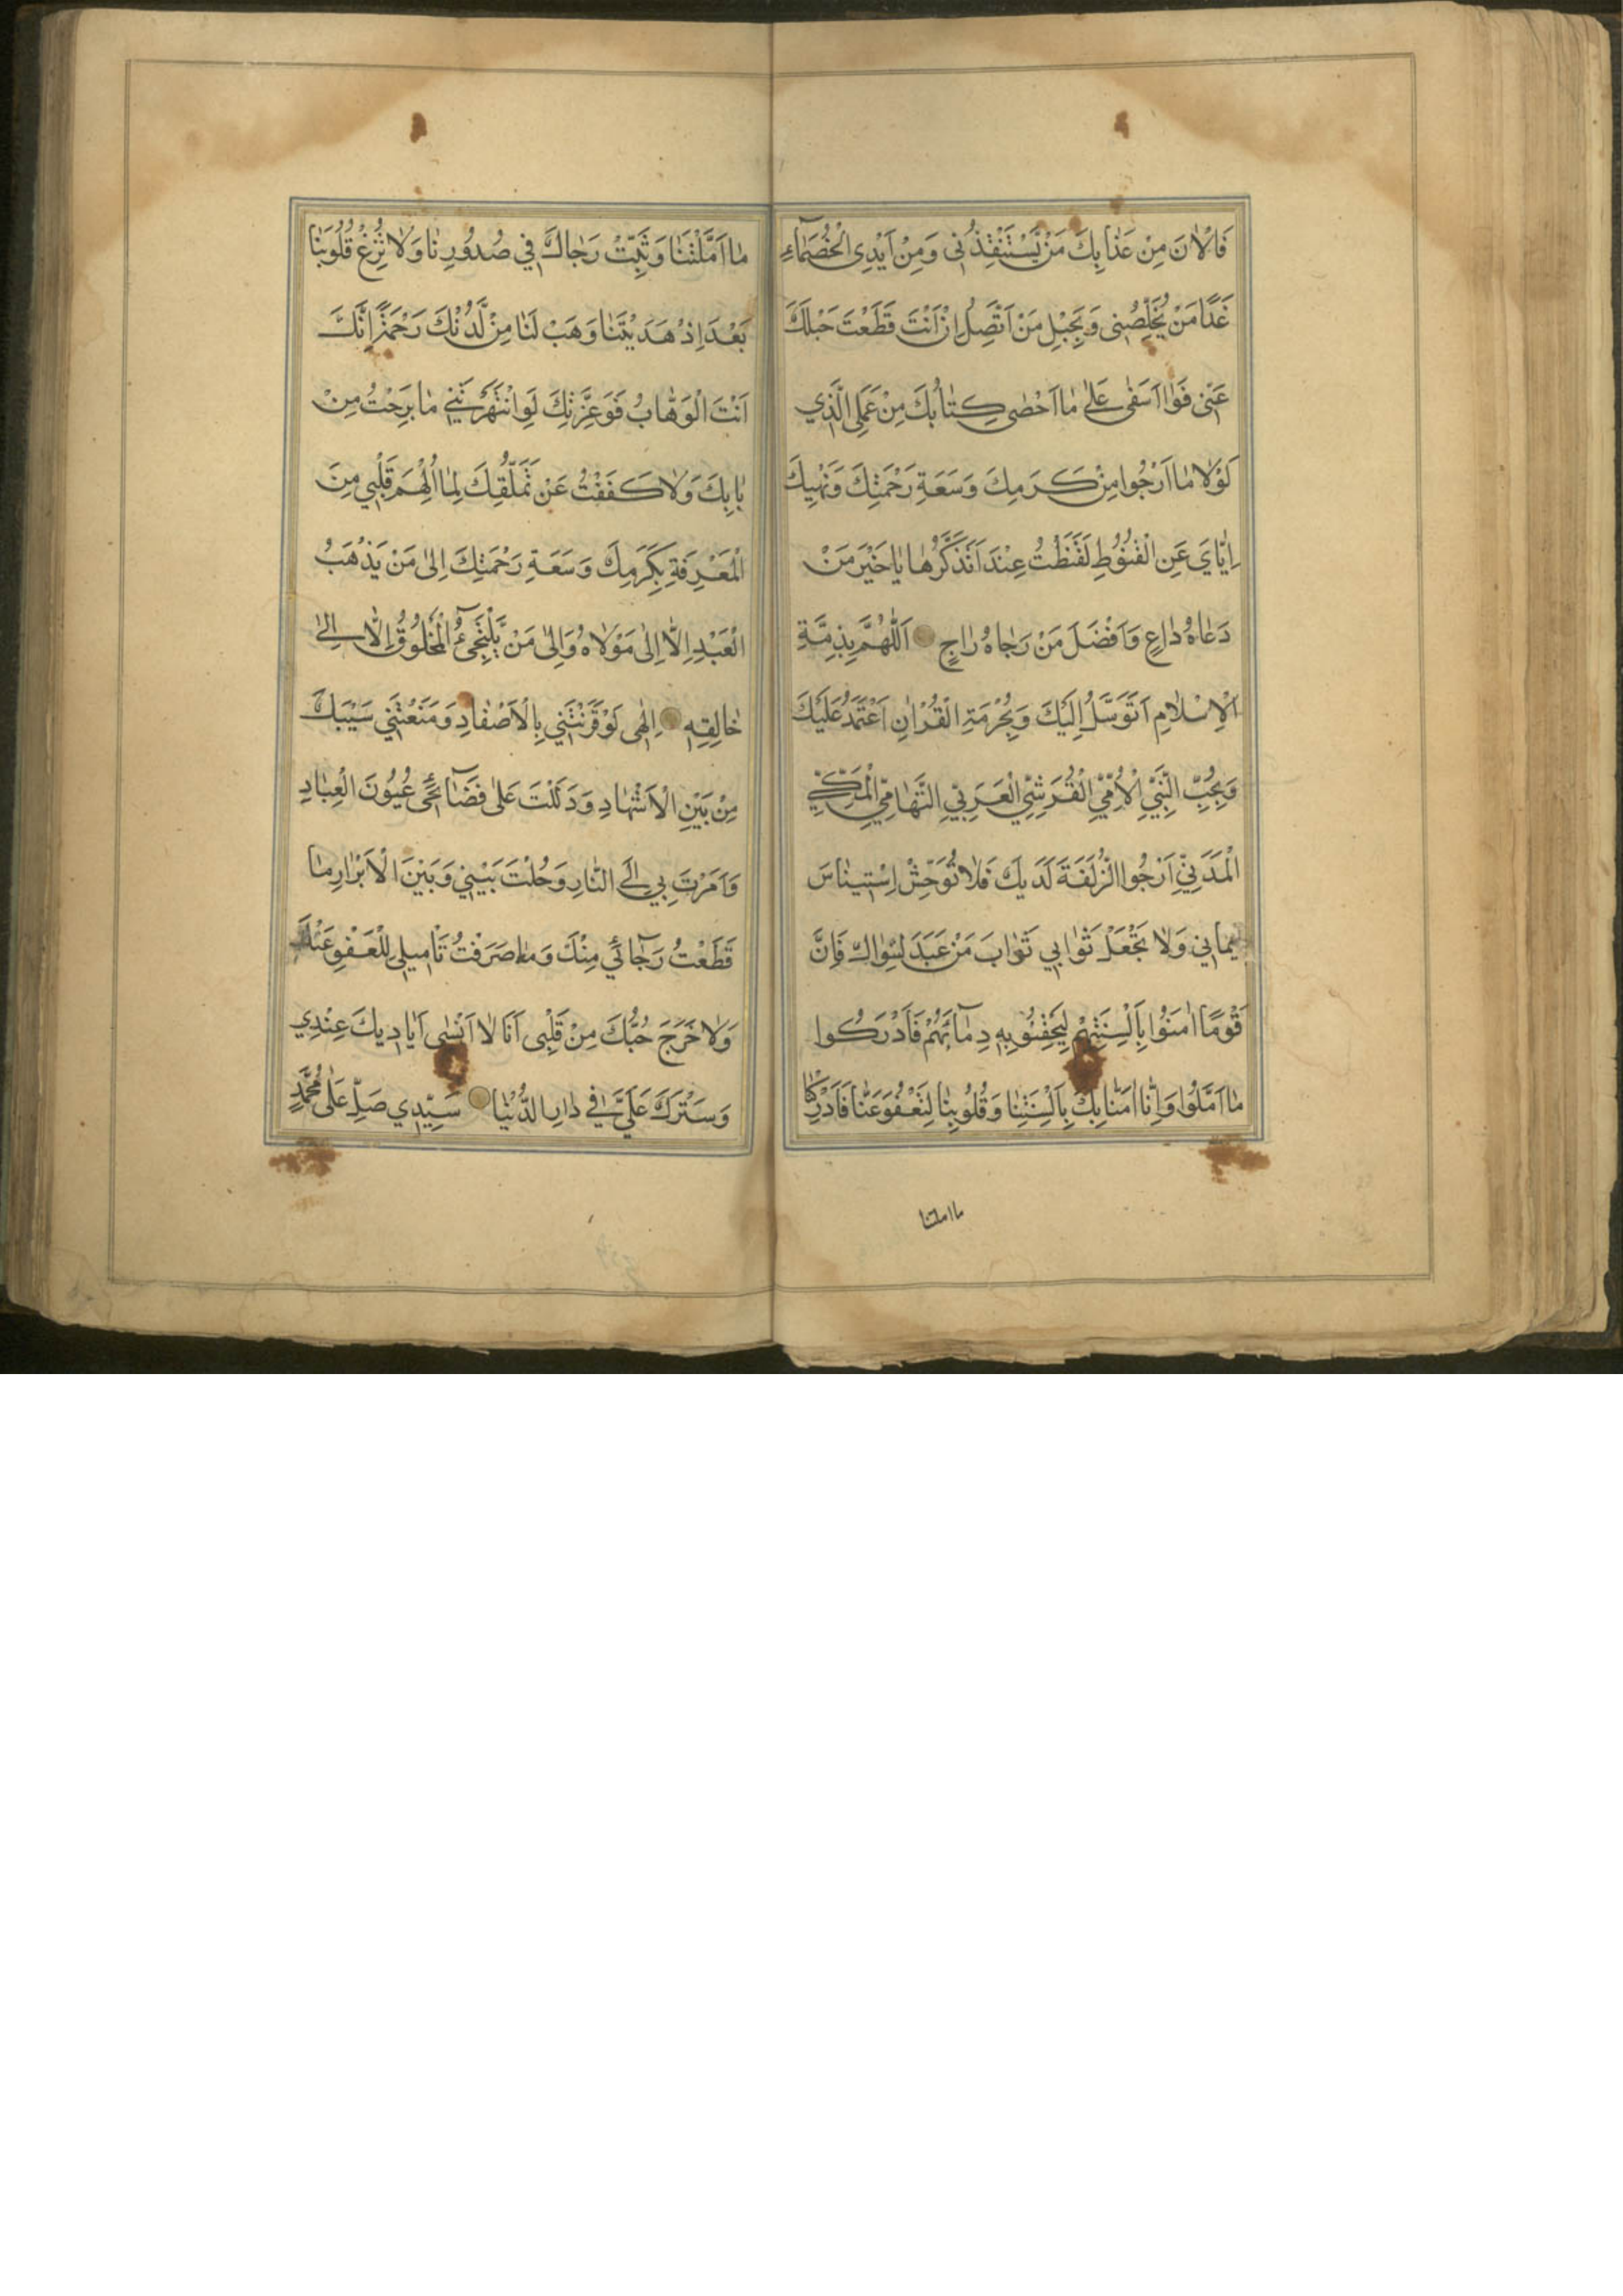 فَالْاٰنَ مِنْ عَذٰابِكَ مَنْ يَسْتَنْقِذُنِى وَمِنْ اَيْدِى الْخُصَمَآءِ
غَدًا مَنْ يُخَلِّصُنِى وَبِحَبْلِ مَنْ اَتَّصِلُ اِنْ اَنْتَ قَطَعْتَ حَبْلَكَ
عَنّى فَوٰا اَسَفٰى عَلىٰ مٰا اَحْصٰى كِتٰابُكَ مِنْ عَمَلِى الَّذِي
لَوْلٰا مٰا اَرْجُوا مِنْ كَرَمِكَ وَسَعَةِ رَحْمَتِكَ وَنَهْيِكَ
اِيّٰايَ عَنِ الْقُنُوُطِ لَقَنَطْتُ عِنْدَ اَتَذَكَّرُهٰا يٰا خَيْرَ مَنْ
دَعٰاهُ دٰاعٍ وَاَفْضَلَ مَنْ رَجٰاهُ رٰاجٍ اَللّٰهُمَّ بِذِمَّةِ
الْاِسْلٰامِ اَتَوَسَّلُ اِلَيْكَ وَبِحُرْمَةِ الْقُرْاٰنِ اَعْتَمِدُ عَلَيْكَ
وَبِحُبِّ النَّبِيِّ الْاُمِّيِّ الْقُرَشِيِّ الْعَرَبِيِّ التَّهٰامِيِّ الْمَكِّيِّ
الْمَدَنِيِّ اَرْجُوا الزُّلْفَةَ لَدَيْكَ فَلٰا تُوَحِّشْ اِسْتِينٰاسَ
اِيمٰانِي وَلٰا تَجْعَلْ ثَوٰابِي ثَوٰابَ مَنْ عَبَدَ سِوٰاكَ فَاِنَّ
قَوْمًا اٰمَنُوا بِاَلْسِنَتِهِمْ لِيَحْقِنُوا بِهِ دِمٰآئَهُمْ فَاَدْرَكُوا
مٰا اَمَّلُوا وَاِنّٰا اٰمَنّٰا بِكَ بِاَلْسِنَتِنٰا وَقُلُوبِنٰا لِتَعْفُوَ عَنّٰا فَاَدْرِكْنٰا
ما املتنا
مٰا اَمَّلْتَنٰا وَثَبِّتْ رَجٰاكَ فِي صُدُورِنٰا وَلٰا تُزِغْ قُلُوبَنٰا
بَعْدَ اِذْ هَدَيْتَنٰا وَهَبْ لَنٰا مِنْ لَدُنْكَ رَحْمَةً اِنَّكَ
اَنْتَ الْوَهّٰابُ فَوَعِزَّتِكَ لَوِ انْتَهَرْتَنِي مٰا بَرِحْتُ مِنْ
بٰابِكَ وَلٰا كَفَفْتُ عَنْ تَمَلُّقِكَ لِمٰا اُلْهِمَ قَلْبِي مِنَ
الْمَعْرِفَةِ بِكَرَمِكَ وَسَعَةِ رَحْمَتِكَ اِلىٰ مَنْ يَذْهَبُ
الْعَبْدُ اِلّٰا اِلىٰ مَوْلٰاهُ وَاِلىٰ مَنْ يَلْتَجِئُ الْمَخْلُوقُ اِلّٰا اِلىٰ
خٰالِقِهِ اِلٰهِى لَوْ قَرَنْتَنِي بِالْاَصْفٰادِ وَمَنَعْتَنِي سَيْبَكَ
مِنْ بَيْنِ الْاَشْهٰادِ وَدَلَلْتَ عَلىٰ فَضٰآئِحِى عُيُونَ الْعِبٰادِ
وَاَمَرْتَ بِي اِلَى النّٰارِ وَحُلْتَ بَيْنِي وَبَيْنَ الْاَبْرٰارِ مٰا
قَطَعْتُ رَجٰآئِي مِنْكَ وَمٰا صَرَفْتُ تَاْمِيلِى لِلْعَفْوِ عَنْكَ
وَلٰا خَرَجَ حُبُّكَ مِنْ قَلْبِى اَنَا لٰا اَنْسٰى اَيٰادِيكَ عِنْدِي
وَسَتْرَكَ عَلَيَّ فِي دٰارِ الدُّنْيٰا سَيِّدِي صَلِّ عَلىٰ مُحَمَّدٍ